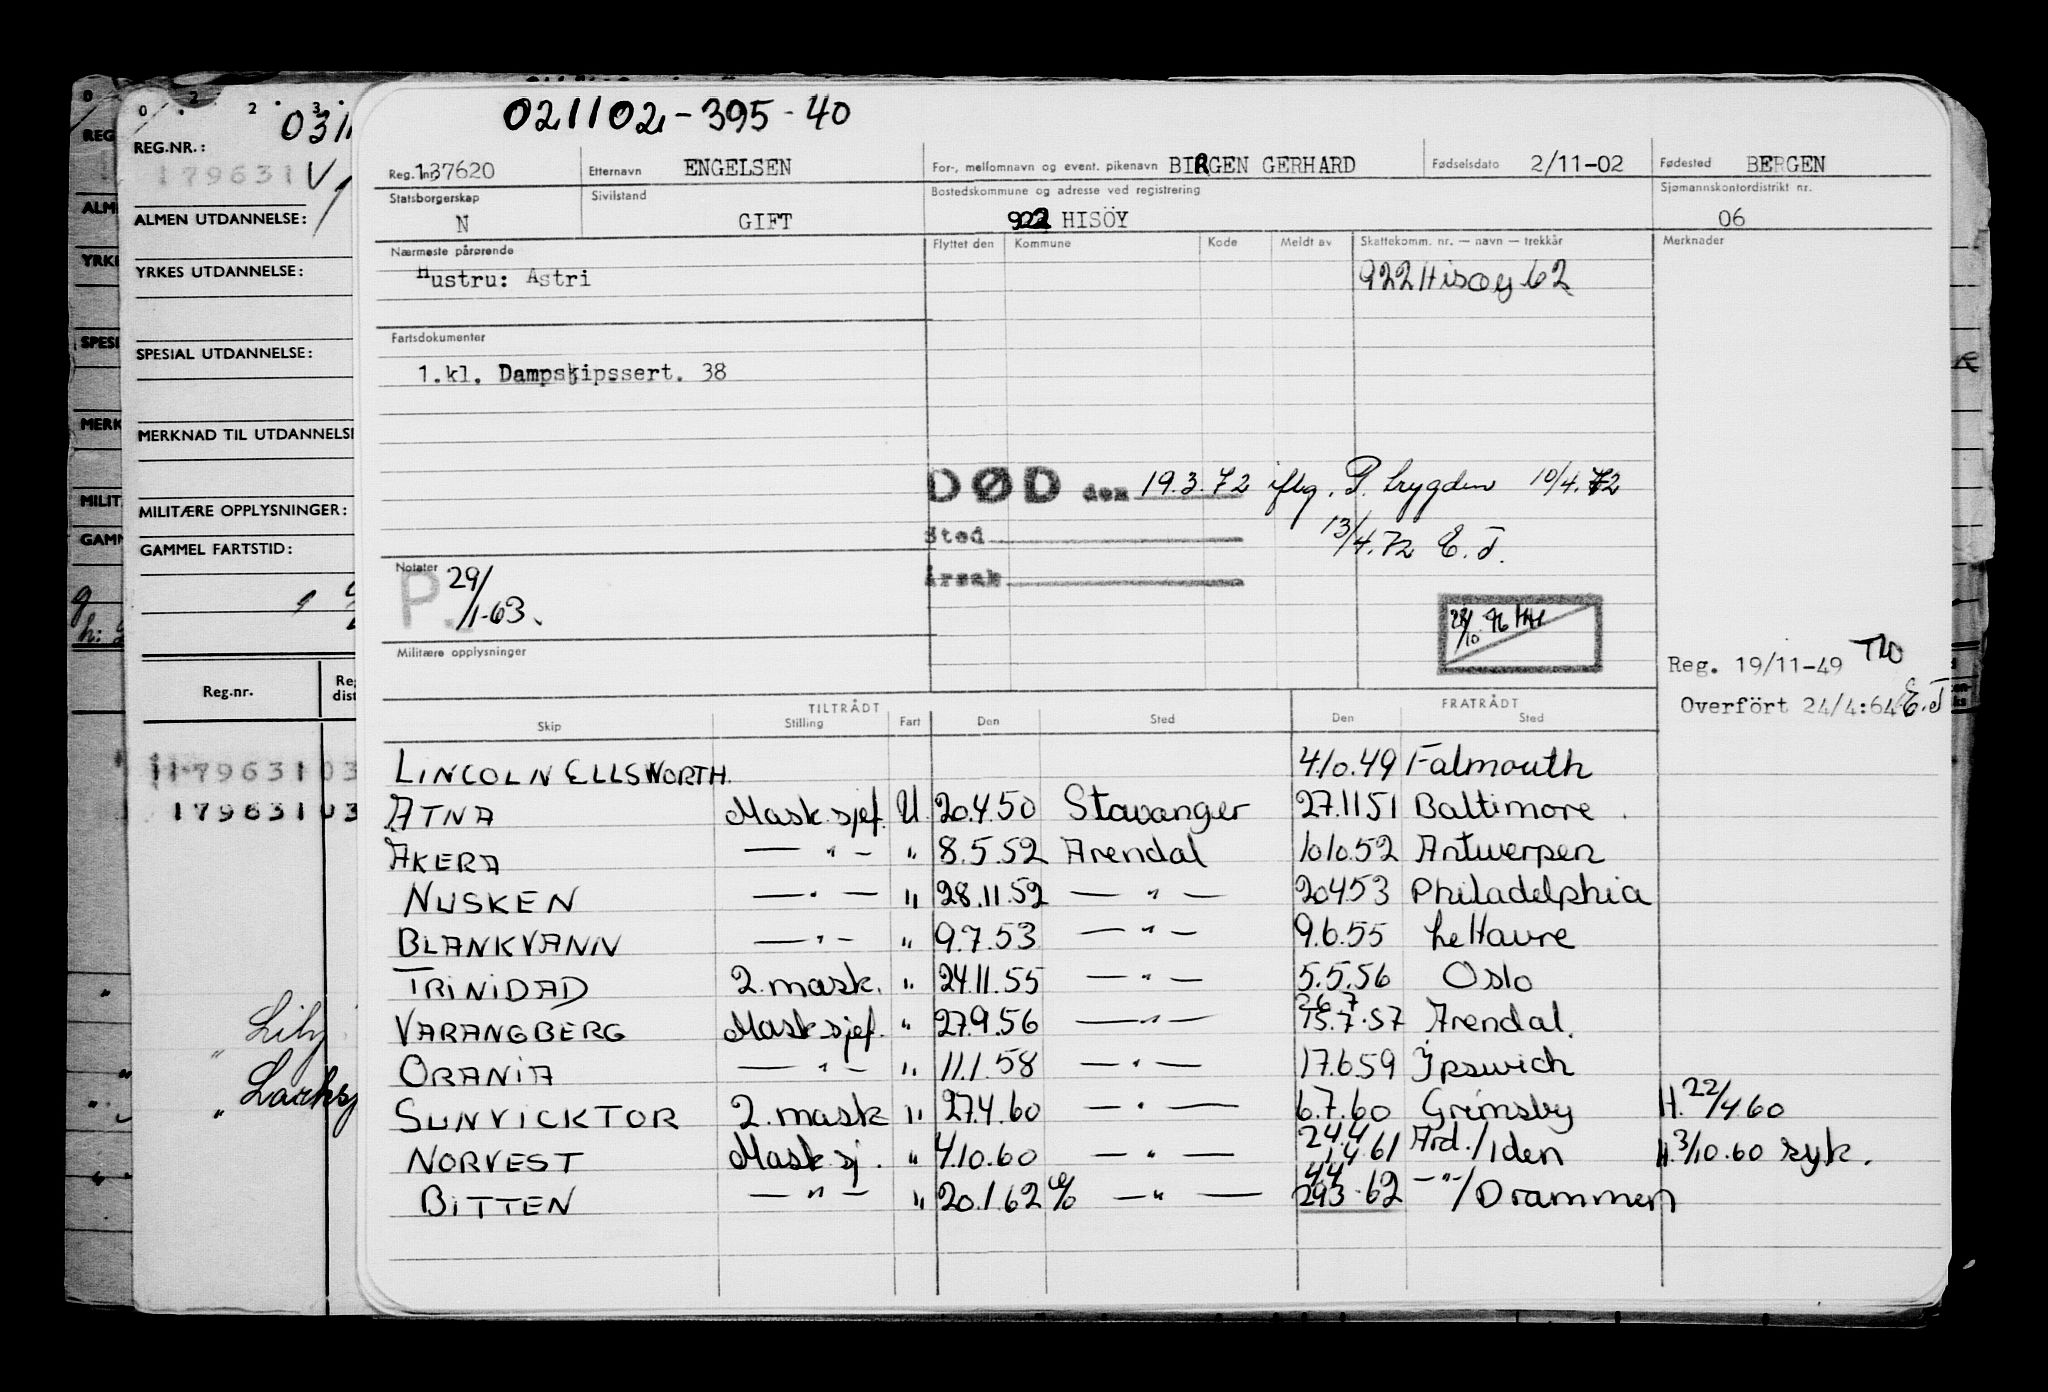 021102-395-40
Reg. nr. 137620 Etternavn ENGELSEN For-, mellomnavn og event. pikenavn BIRGEN GERHARD Fødselsdato 2/11-02 Fødested BERGEN
Statsborgerskap N Sivilstand GIFT Bostedskommune og adresse ved registrering 922 HISÖY Sjømannskontordistrikt nr. 06
Nærmeste pårørende Flyttet den Kommune Kode Meldt av Skattekomm. nr. — navn — trekkår Merknader
Hustru: Astri 922 Hisøy 62
Fartsdokumenter
1.kl. Dampskipssert. 38
DØD den 19.3.72 iflg. P. trygden 10/4.72
Sted 13/4.72 E.J.
Årsak
Notater
P. 29/1-63.
Militære opplysninger
Reg. 19/11-49
Overfört 24/4:64 E.J
TILTRÅDT FRATRÅDT
Skip Stilling Fart Den Sted Den Sted
LINCOLN ELLSWORTH. 4.10.49 Falmouth
ATNA Mask.sjef. U 20.4.50 Stavanger 27.11 51 Baltimore
AKERA — " — " 8.5.52 Arendal 10 10.52 Antwerpen
NUSKEN — " — " 28.11.52 — " — 20 4 53 Philadelphia
BLANKVANN — " — " 9.7.53 — " — 9.6.55 Le Havre
TRINIDAD 2. mask. " 24.11.55 — " — 5.5.56 Oslo
VARANGBERG Mask sjef. " 27.9.56 — " — 26.7 15.7.57 Arendal.
ORANIA — " — " 11.1.58 — " — 17.6 59 Ipswich
SUNVICKTOR 2. mask " 27.4.60 — " — 6.7.60 Grimsby H. 22/4 60
NORVEST Mask sj. " 4.10.60 — " — 24.4 1.4 61 Ard./iden H. 3/10.60 syk.
BITTEN — " — " 20.1.62 % — " — 4.4 29.3.62 — " —/Drammen
REG.NR.:
179631
ALMEN UTDANNELSE:
YRKES UTDANNELSE:
SPESIAL UTDANNELSE:
MERKNAD TIL UTDANNELSE
MILITÆRE OPPLYSNINGER:
GAMMEL FARTSTID:
Reg.nr.
179631 03
179631 03